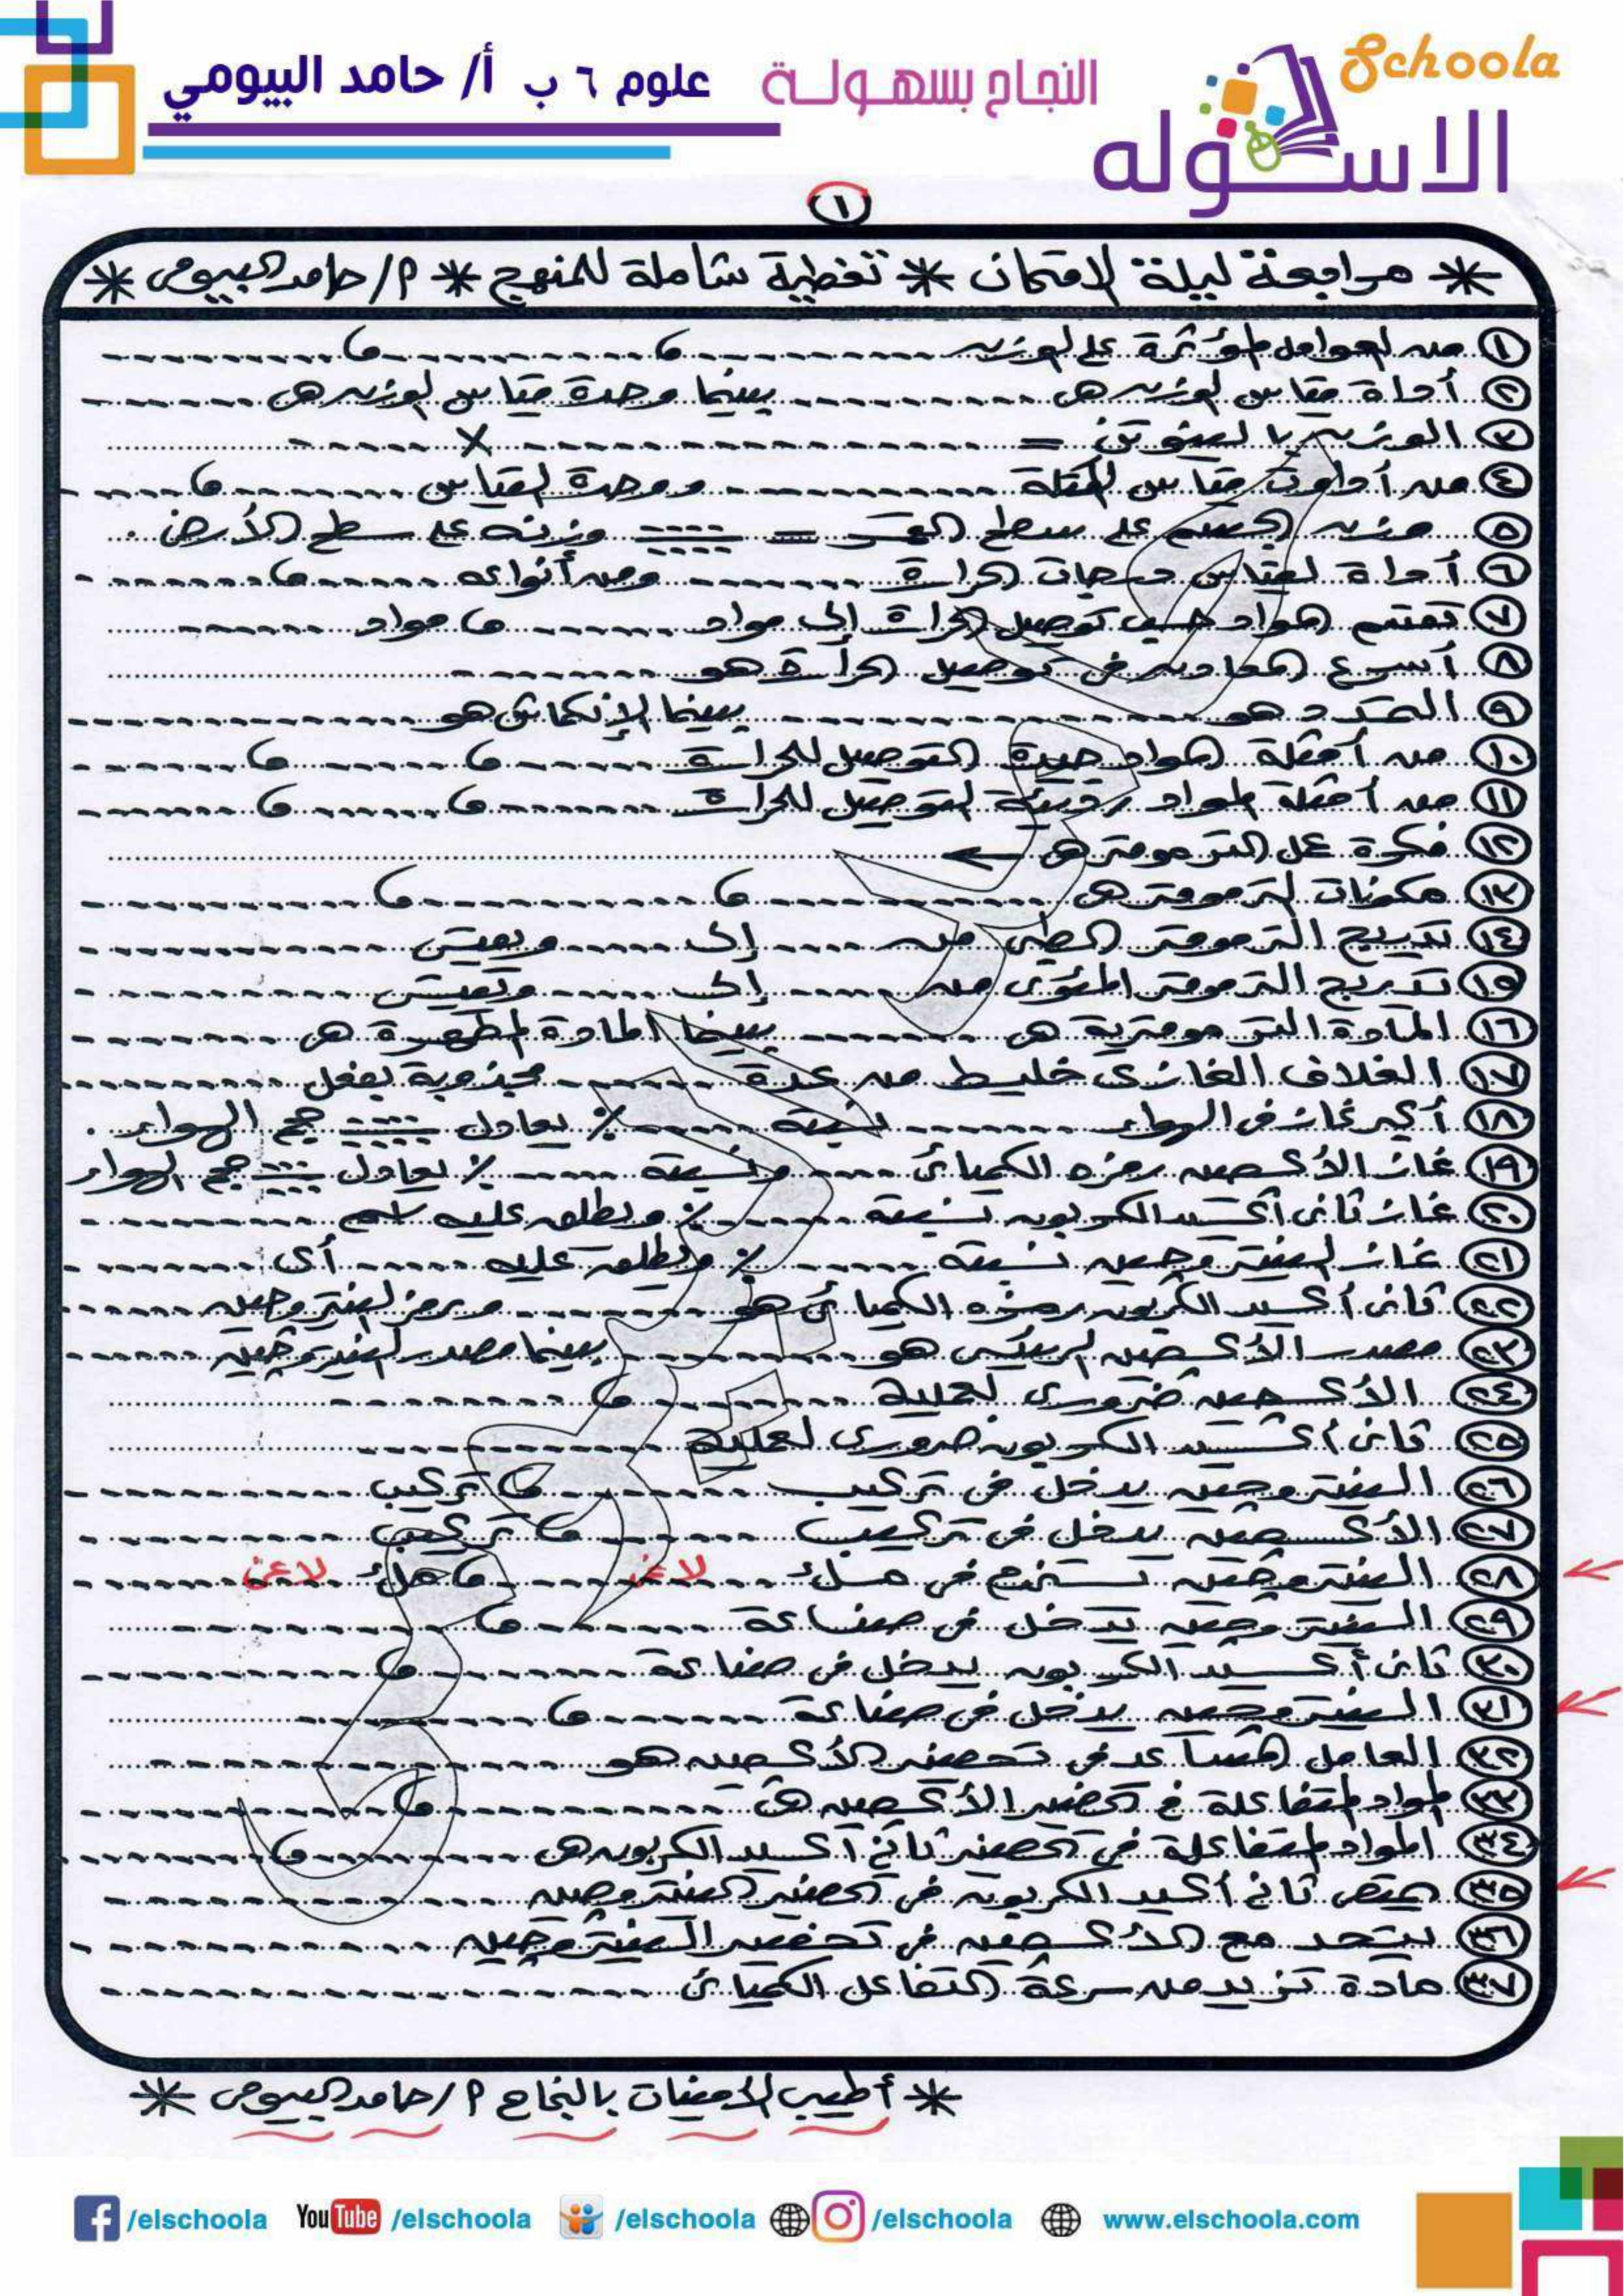 Schoola
الاسكوله
النجاح بسهولة
علوم ٦ ب أ/ حامد البيومي
١
* مراجعة ليلة الامتحان * تغطية شاملة للمنهج * م/ حامد البيومى *
١ من العوامل المؤثرة على الوزن ........ و ........ و ........
٢ أداة مقياس الوزن هى ........ بينما وحدة مقياس الوزن هى ........
٣ الوزن بالنيوتن = ........ × ........
٤ من أدوات مقياس الكتلة ........ ووحدة القياس ........ و ........
٥ وزن الجسم على سطح القمر = ........ وزنه على سطح الأرض .
٦ أداة لقياس درجات الحرارة ........ ومن أنواعه ........ و ........
٧ تقسم المواد حسب توصيل الحرارة إلى مواد ........ و مواد ........
٨ أسرع المعادن فى توصيل الحرارة هو ........
٩ التمدد هو ........ بينما الإنكماش هو ........
١٠ من أمثلة المواد جيدة التوصيل للحرارة ........ و ........ و ........
١١ من أمثلة المواد رديئة التوصيل للحرارة ........ و ........ و ........
١٢ فكرة عمل الترمومتر هى ← ........
١٣ مكونات الترمومتر هى ........ و ........ و ........
١٤ تدريج الترمومتر الطبى من ........ إلى ........ ويعيش ........
١٥ تدريج الترمومتر المئوى من ........ إلى ........ وتعيش ........
١٦ المادة الترمومترية هى ........ بينما المادة المطهرة هى ........
١٧ الغلاف الغازى خليط من عدة ........ مجذوبة بفعل ........
١٨ أكبر غاز فى الهواء ........ نسبته ........ % يعادل ........ حجم الهواء .
١٩ غاز الأكسجين رمزه الكميائى ........ ونسبته ........ % يعادل ........ حجم الهواء
٢٠ غاز ثانى أكسيد الكربون نسبته ........ % ويطلق عليه اسم ........
٢١ غاز النيتروجين نسبته ........ % ويطلق عليه ........ أى ........
٢٢ ثانى أكسيد الكربون رمزه الكميائى هو ........ ورمز النيتروجين ........
٢٣ مصدر الأكسجين الرئيسى هو ........ بينما مصدر النيتروجين ........
٢٤ الأكسجين ضرورى لعملية ........ و ........
٢٥ ثانى أكسيد الكربون ضرورى لعملية ........
٢٦ النيتروجين يدخل فى تركيب ........ و تركيب ........
٢٧ الأكسجين يدخل فى تركيب ........ و تركيب ........
٢٨ النيتروجين تستخدم فى ملئ ........ و ملئ ........
٢٩ النيتروجين يدخل فى صناعة ........ و ........
٣٠ ثانى أكسيد الكربون يدخل فى صناعة ........ و ........
٣١ النيتروجين يدخل فى صناعة ........ و ........
٣٢ العامل المساعد فى تحضير الأكسجين هو ........
٣٣ المواد المتفاعلة فى تحضير الأكسجين هى ........ و ........
٣٤ المواد المتفاعلة فى تحضير ثانى أكسيد الكربون هى ........ و ........
٣٥ يمتص ثانى أكسيد الكربون فى تحضير النيتروجين ........
٣٦ يتحد مع الأكسجين فى تحضير النيتروجين ........
٣٧ مادة تزيد من سرعة التفاعل الكميائى ........
* أطيب الأمنيات بالنجاح م/ حامد البيومى *
/elschoola YouTube /elschoola /elschoola /elschoola www.elschoola.com